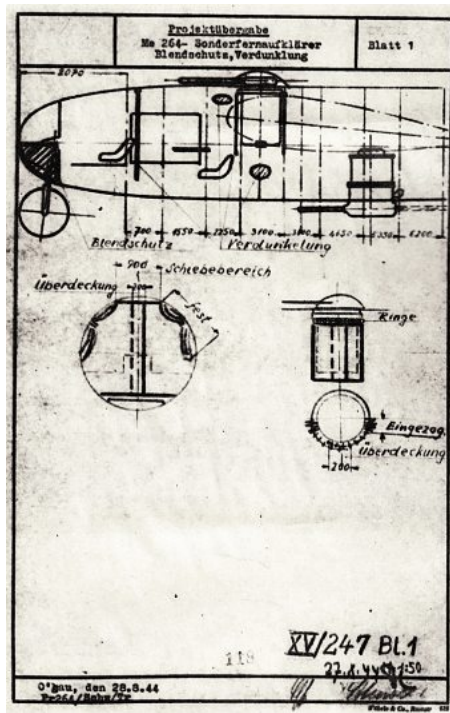 Projektübergabe
Me 264- Sonderfernaufklärer
Blendschutz,Verdunklung
Blatt 1
2070
700
1550
2250
3100
4650
6200
Blendschutz
Verdunkelung
900
Schiebebereich
Überdeckung
200
fest
Ringe
Eingezog.
Überdeckung
200
XV/247 Bl.1
27.8.44
1:50
O'gau, den 28.8.44